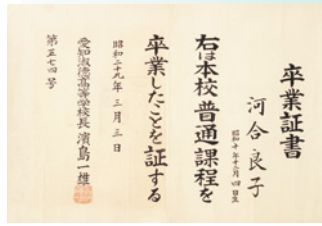 卒業証書
河合良子
昭和十年十二月四日生
右は本校普通課程を
卒業したことを証する
昭和二十九年三月三日
愛知淑徳高等学校長 濱島一雄
第五七四号